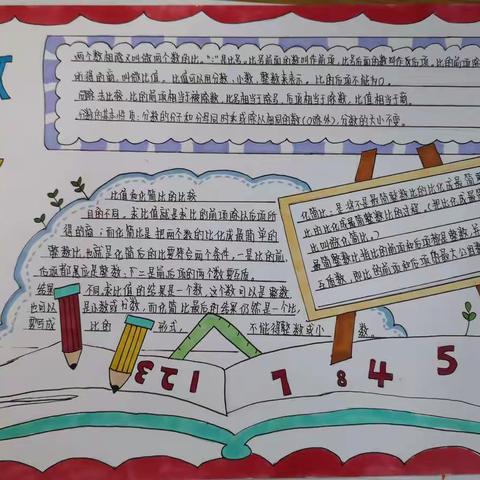 两个数相除又叫做两个数的比。":"是比号,比号前面的数叫作前项,比号后面的数叫作后项,比的前项除
所得的商,叫做比值。比值可以用分数、小数,整数来表示。比的后项不能为0。
同除法比较,比的前项相当于被除数,比号相当于除号,后项相当于除数,比值相当于商。
分数的基本性质:分数的分子和分母同时乘或除以相同的数(0除外),分数的大小不变。
比值和化简比的比较
目的不同,求比值就是求比的前项除以后项所
得的商;而化简比是把两个数的比化成最简单的
整数比,也就是化简后的比要符合两个条件,一是比的前、
后项都应是整数,下二是前后项的两个数要互质。
结果不同,求比值的结果是一个数,这个数可以是整数,
也可以是小数或分数,而化简比最后的结果仍然是一个比,
要写成比的形式,不能得整数或小数。
化简比:是将不是最简整数比的比化成最简
比的比化成最简整数比的过程。(把比化成最简
比叫做化简比。)
最简整数比指比的前项和后项都是整数,
互质数,即比的前项和后项的最大公因数
1 2 3
7 8 4 5